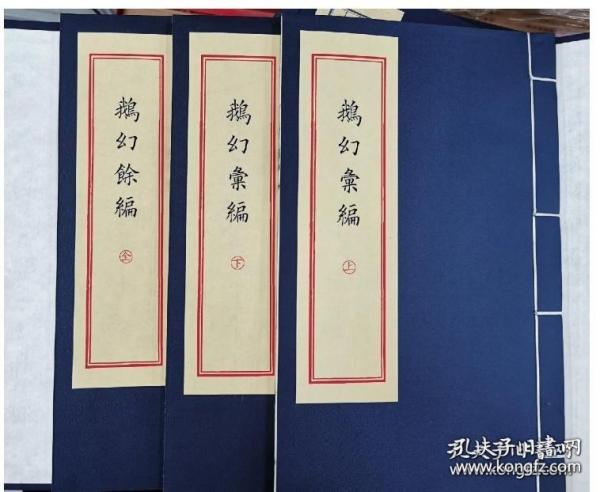 鵝幻彙編
上
鵝幻彙編
下
鵝幻餘編
全
孔夫子旧书网
www.kongfz.com